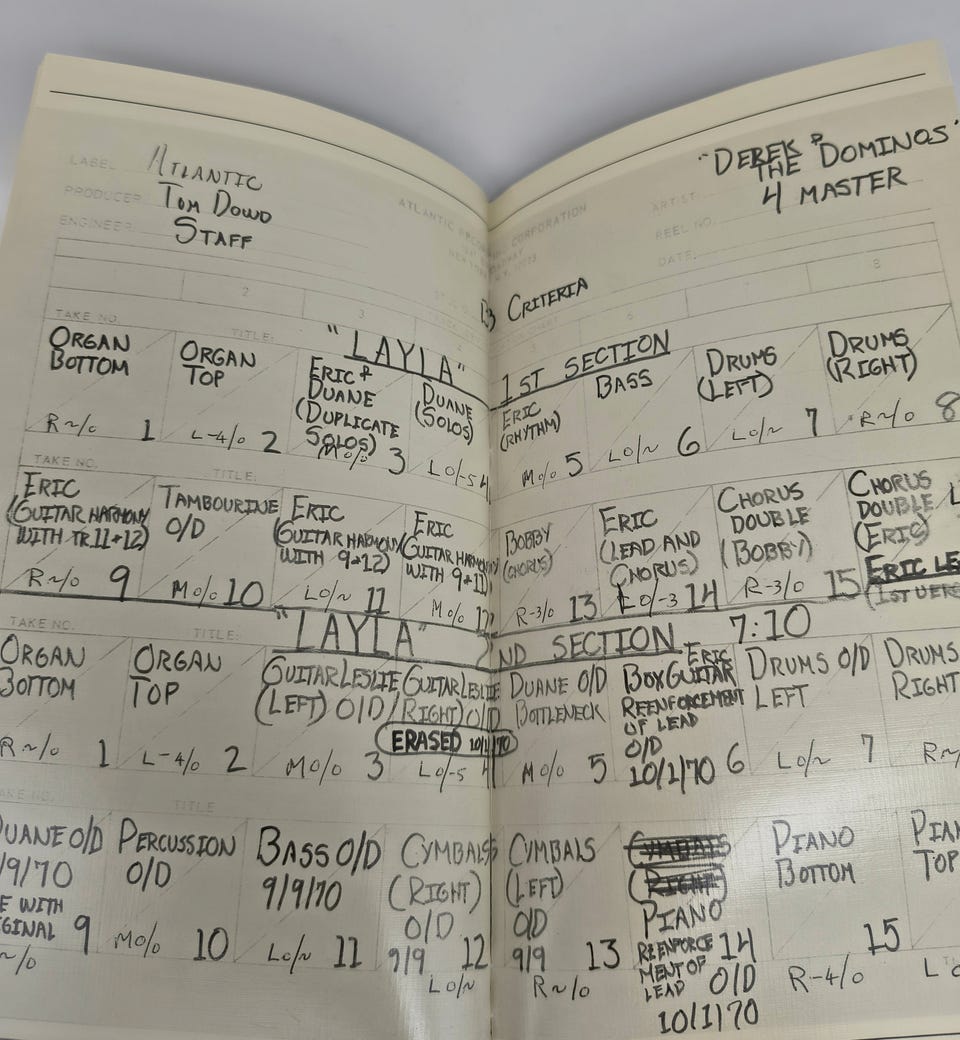 LABEL ATLANTIC
PRODUCER TOM DOWD
ENGINEER STAFF
"DEREK & THE DOMINOS"
ARTIST
4 MASTER
REEL NO.
DATE
CRITERIA
2 3 8
TAKE NO. TITLE:
"LAYLA" 1ST SECTION
ORGAN BOTTOM R~/o 1
ORGAN TOP L-4/o 2
ERIC + DUANE (DUPLICATE SOLOS) Mo/o 3
DUANE (SOLOS) Lo/-5 4
ERIC (RHYTHM) Mo/o 5
BASS Lo/~ 6
DRUMS (LEFT) Lo/~ 7
DRUMS (RIGHT) R~/o 8
TAKE NO. TITLE:
ERIC (GUITAR HARMONY WITH TR 11+12) R~/o 9
TAMBOURINE O/D Mo/o 10
ERIC (GUITAR HARMONY WITH 9+12) Lo/~ 11
ERIC (GUITAR HARMONY WITH 9+11) Mo/o 12
BOBBY (CHORUS) R-3/o 13
ERIC (LEAD AND CHORUS) Lo/-3 14
CHORUS DOUBLE (BOBBY) R-3/o 15
CHORUS DOUBLE (ERIC)
ERIC
TAKE NO. TITLE:
"LAYLA" 2ND SECTION 7:10
ORGAN BOTTOM R~/o 1
ORGAN TOP L-4/o 2
GUITAR LESLIE (LEFT) O/D Mo/o 3
GUITAR LESLIE (RIGHT) O/D ERASED 10/1/70 Lo/-5 4
DUANE O/D BOTTLENECK Mo/o 5
ERIC BOX GUITAR REENFORCEMENT OF LEAD O/D 10/1/70 6
DRUMS O/D LEFT Lo/~ 7
DRUMS RIGHT
TITLE
DUANE O/D 9/9/70 WITH 9
PERCUSSION O/D Mo/o 10
BASS O/D 9/9/70 Lo/~ 11
CYMBALS (RIGHT) O/D 9/9 12 Lo/~
CYMBALS (LEFT) O/D 9/9 13 R~/o
CYMBALS (RIGHT) PIANO REENFORCEMENT OF LEAD O/D 14 10/1/70
PIANO BOTTOM 15 R-4/o
TOP